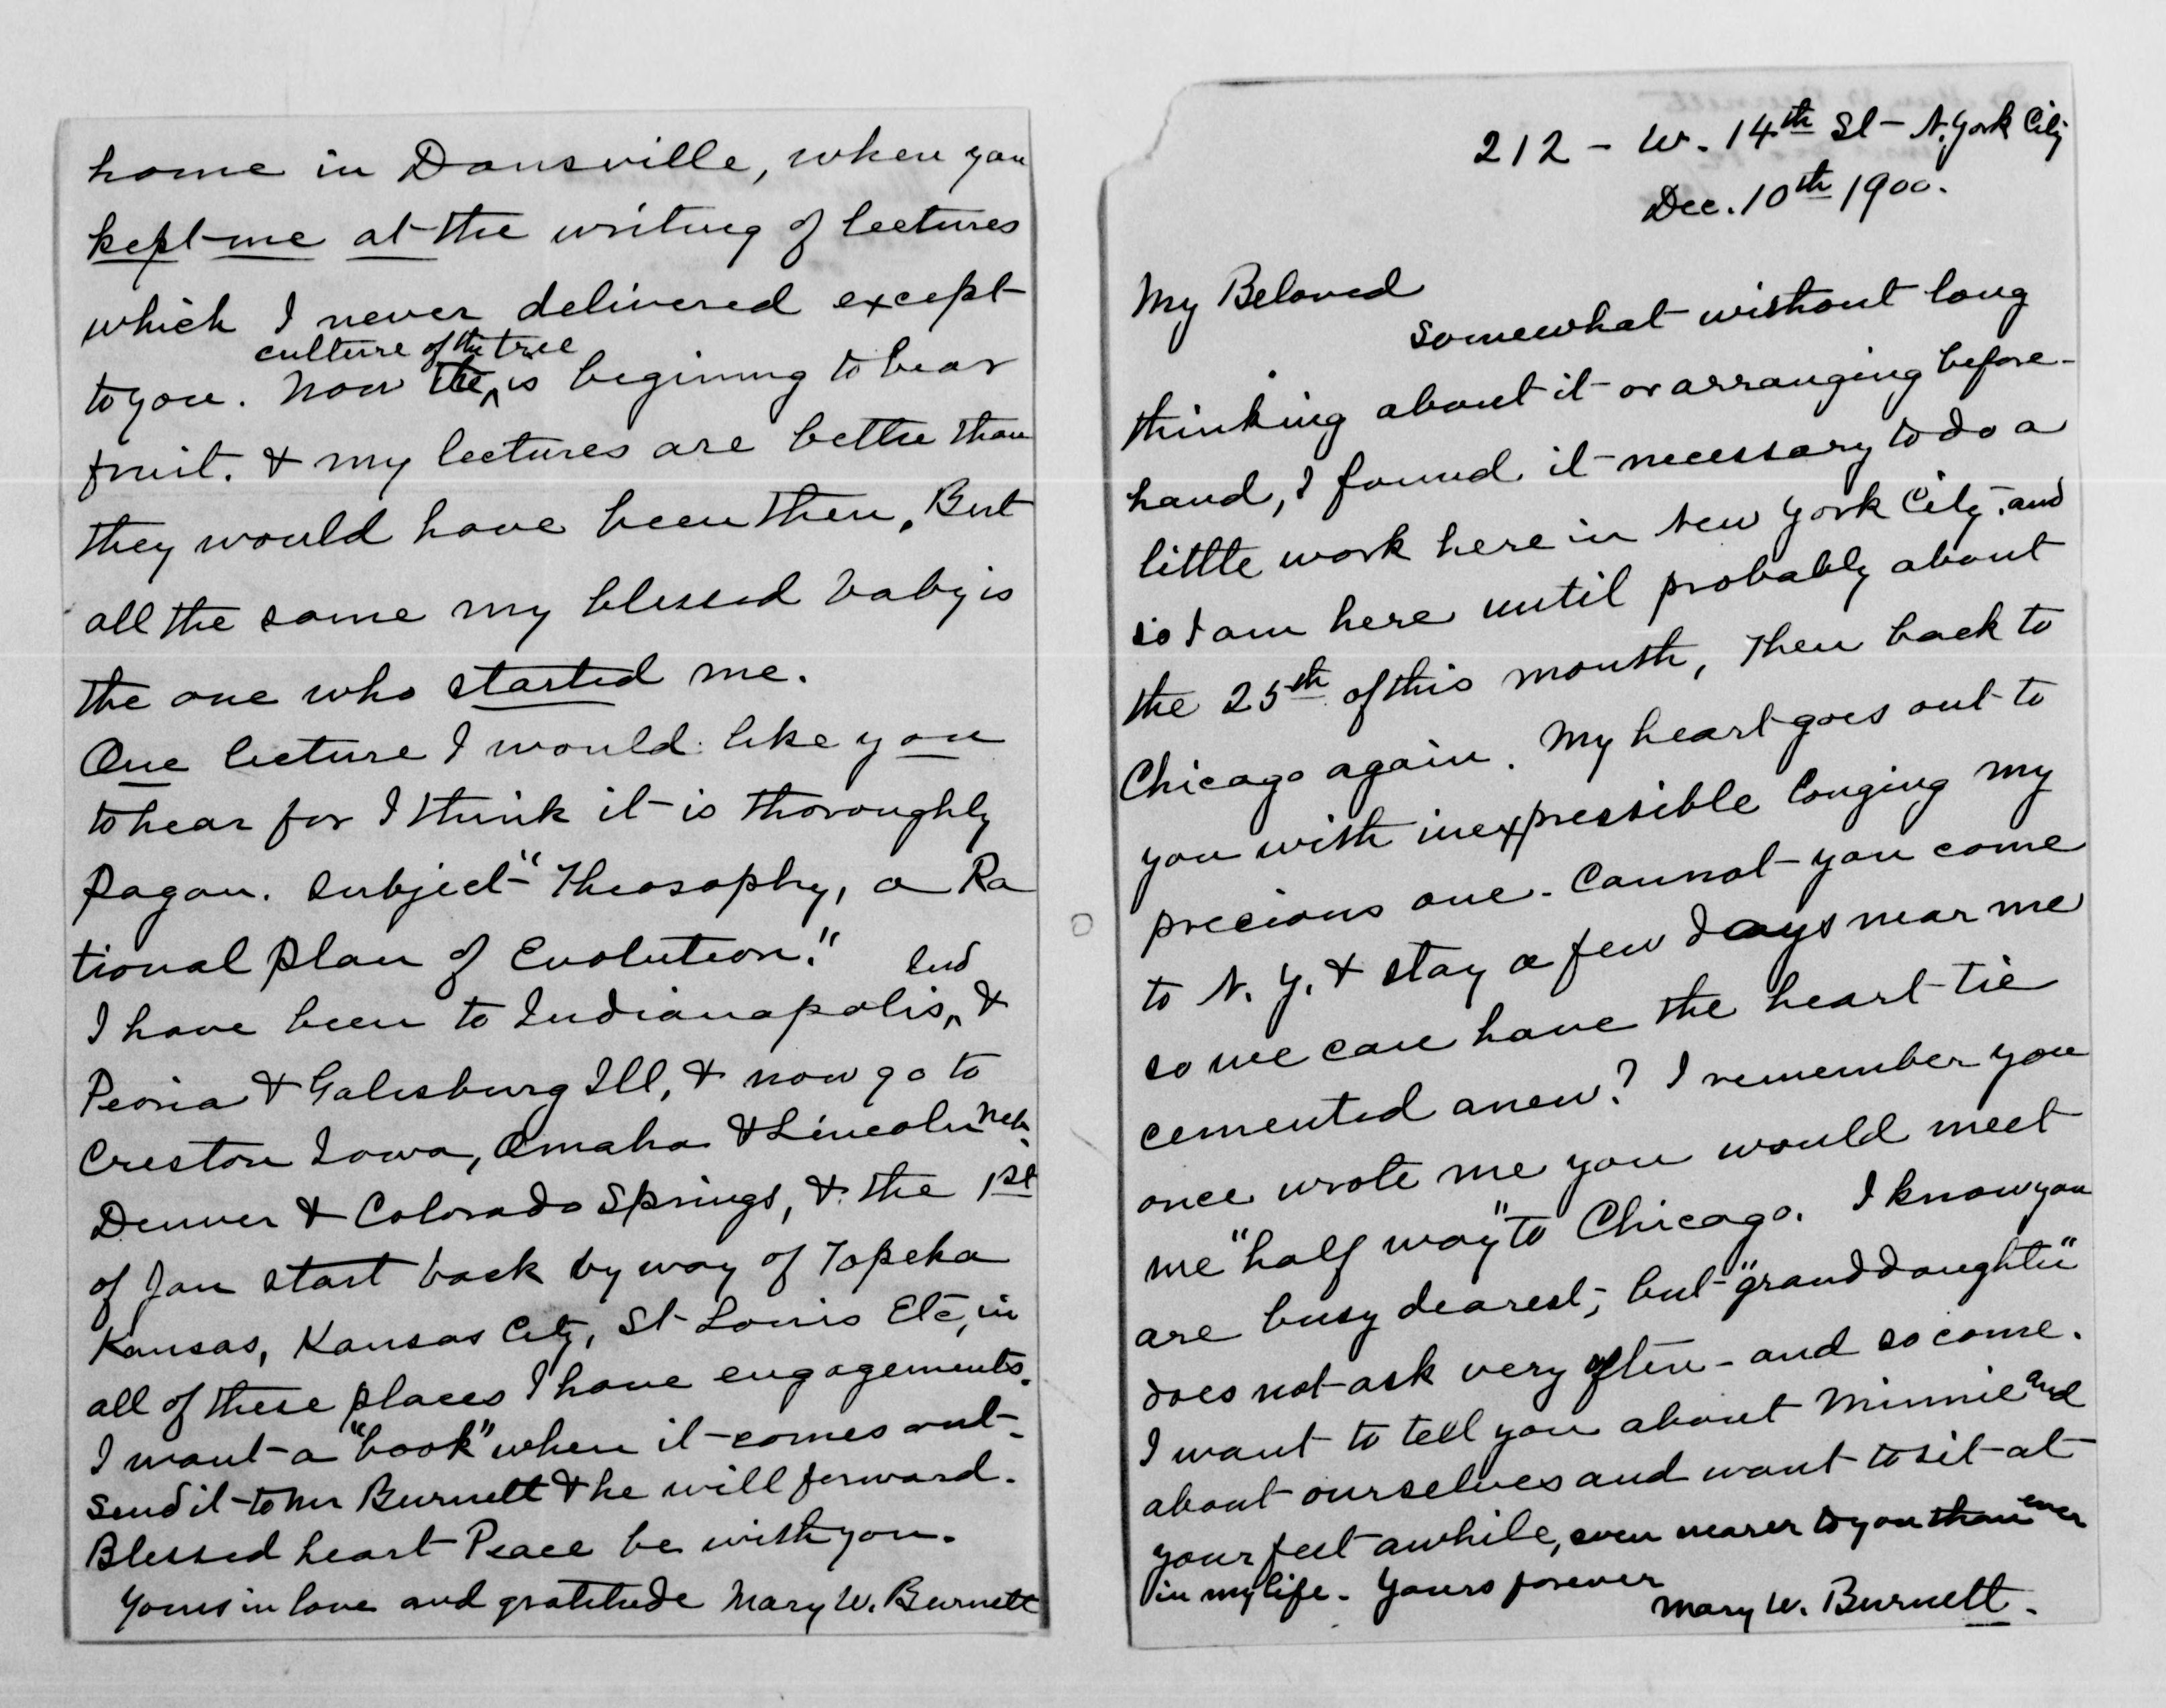 home in Dansville, when you
kept me at the writing of lectures
which I never delivered except
culture of the tree
to you. Now the ‸ is begining to bear
fruit. & my lectures are better than
they would have been then. But
all the same my blessed baby is
the one who started me.
One lecture I would like you
to hear for I think it is thoroughly
Pagan. Subject "Theosophy, a Ra
tional Plan of Evolution."
Ind
I have been to Indianapolis,‸ &
Peoria & Galesburg Ill, & now go to
Creston Iowa, Omaha & Lincoln Neb.
Denver & Colorado Springs, & the 1st
of Jan start back by way of Topeka
Kansas, Kansas City, St Louis Etc, in
all of these places I have engagements.
I want a "book" when it comes out.
Send it to Mr Burnett & he will forward.
Blessed heart Peace be with you.
Yours in love and gratitude Mary W. Burnett
212 - W. 14th St - N. York City
Dec. 10th 1900.
My Beloved
Somewhat without long
thinking about it or arranging before-
hand, I found it necessary to do a
little work here in New York City, and
so I am here until probably about
the 25th of this month, Then back to
Chicago again. My heart goes out to
you with inexpressible longing my
precious one. Cannot you come
to N. Y. & stay a few days near me
so we can have the heart tie
cemented anew? I remember you
once wrote me you would meet
me "half way" to Chicago. I know you
are busy dearest, but "granddaughter"
does not ask very often - and so come.
I want to tell you about Minnie and
about ourselves and want to sit at
your feet awhile, even nearer to you than ever
in my life. Yours forever
Mary W. Burnett.